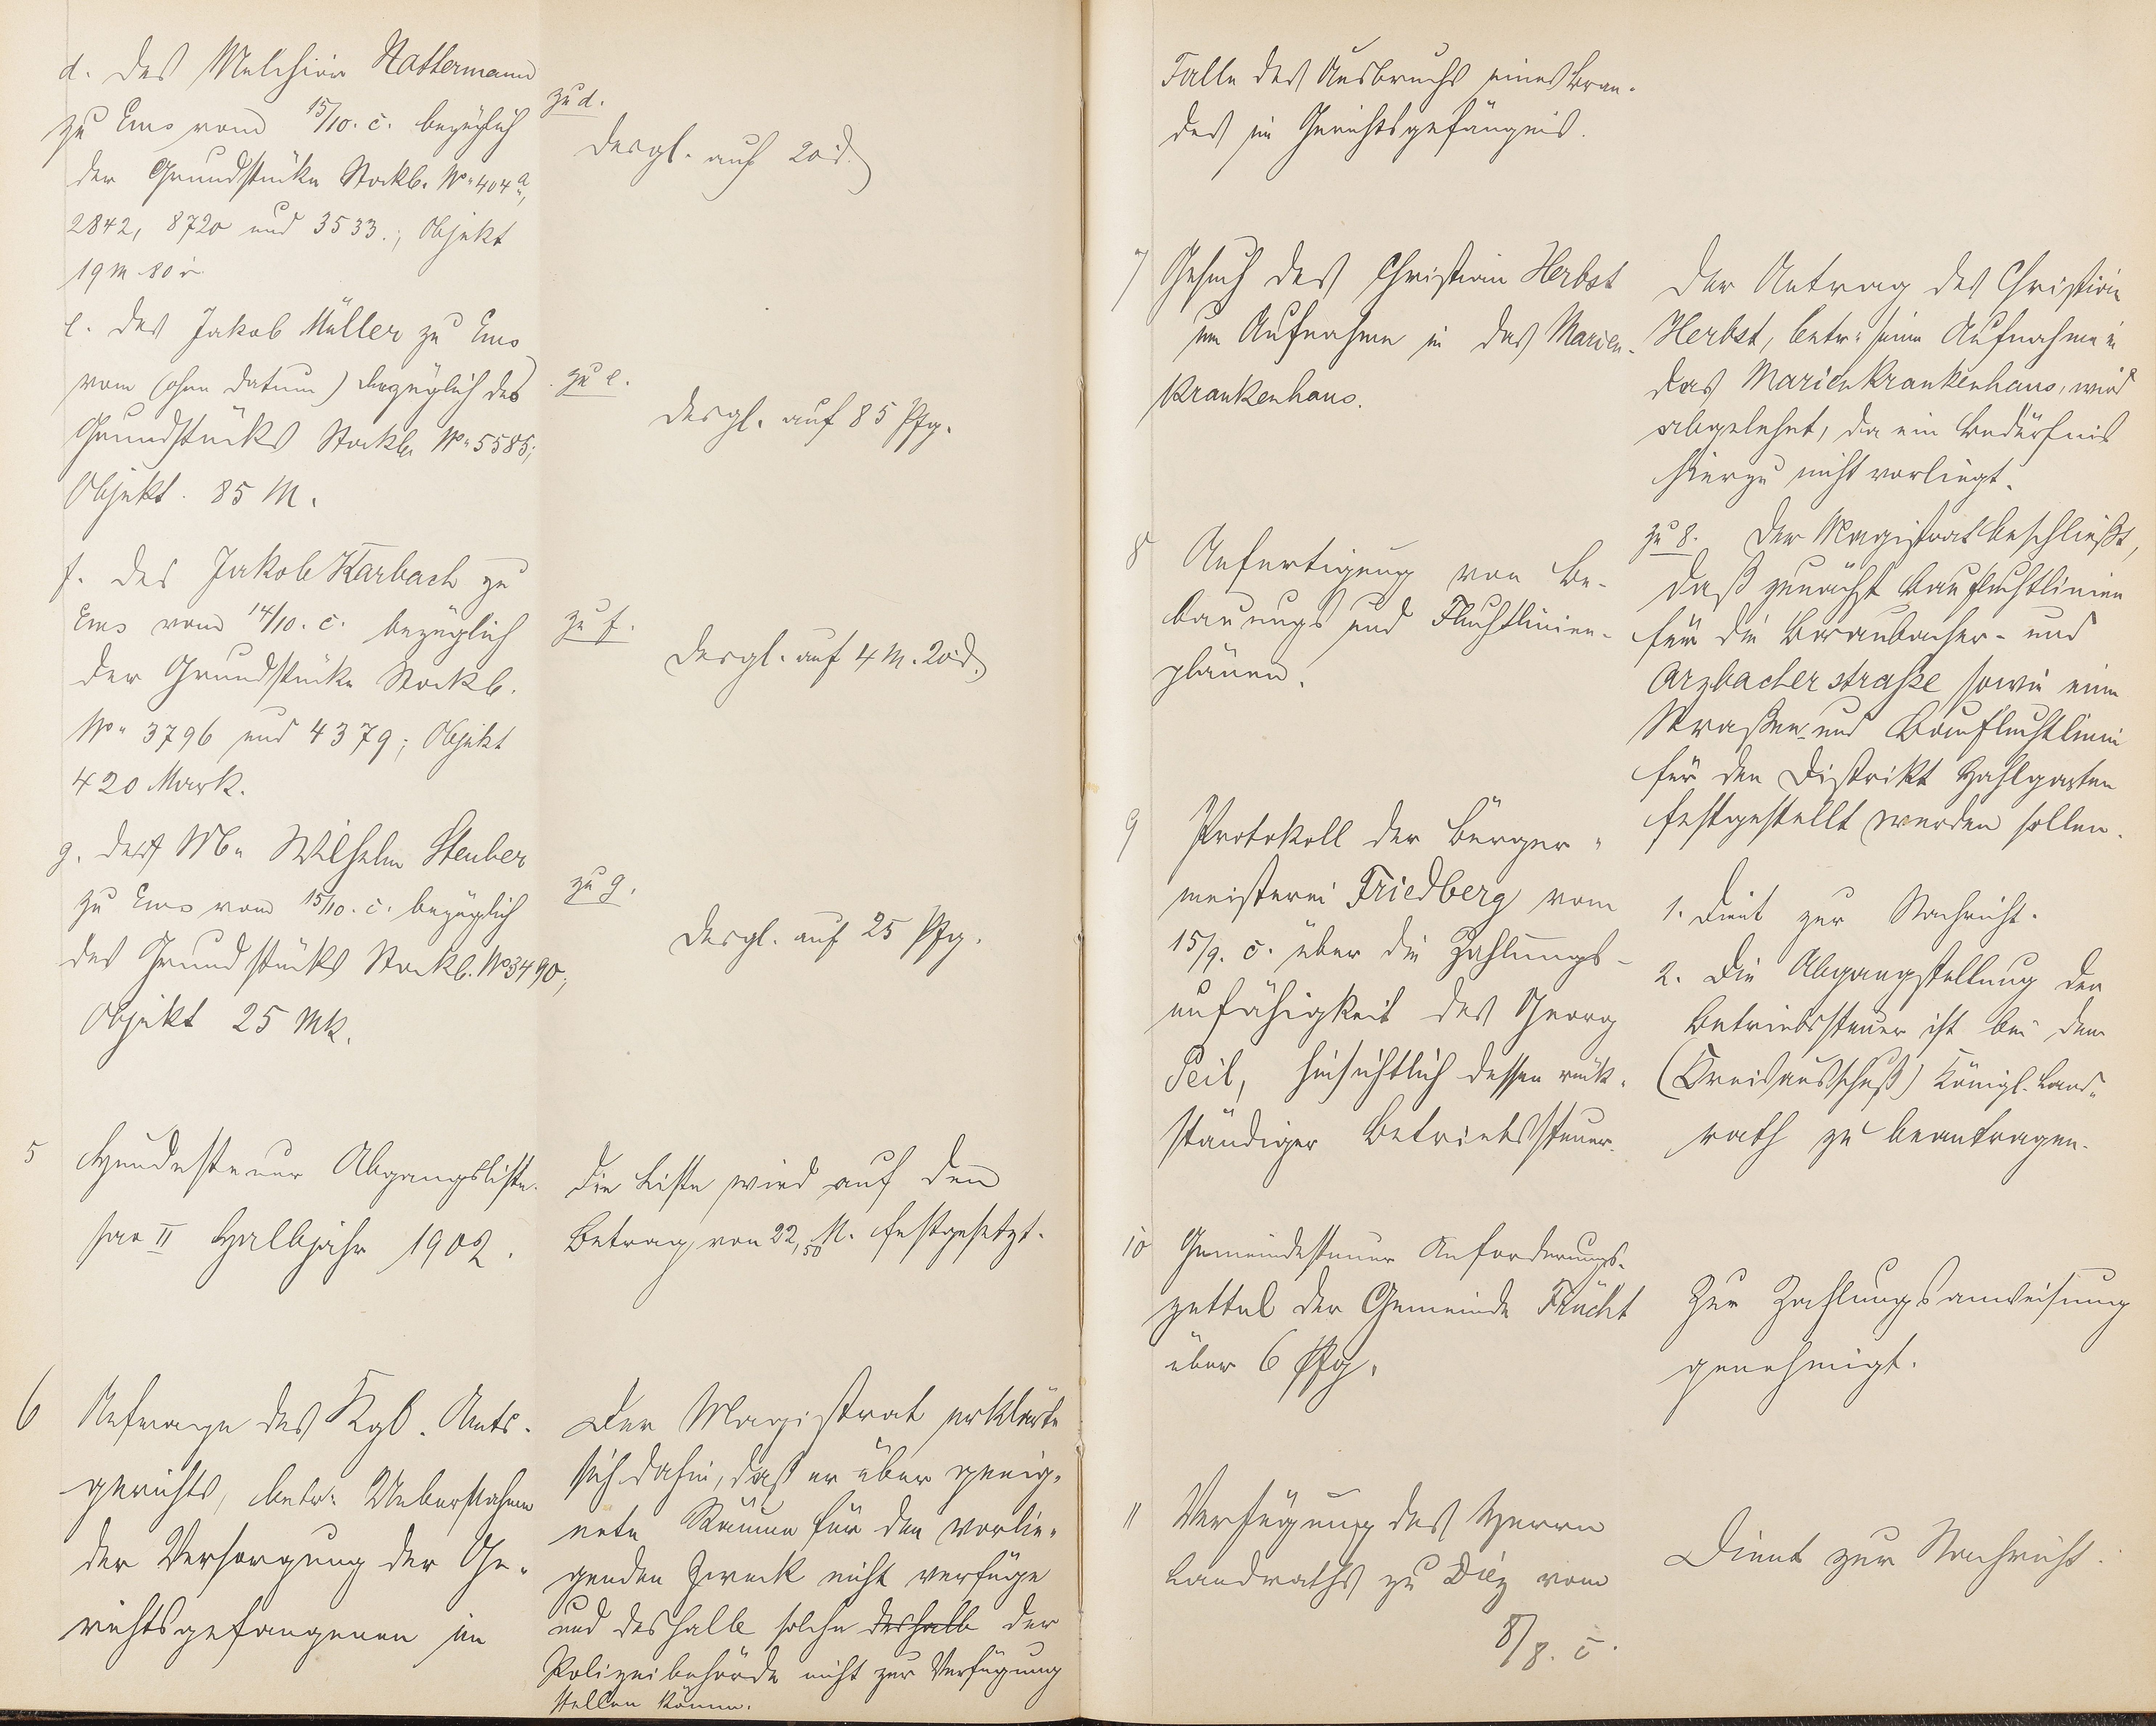 d. des Melchior Nattermann
zu Ems vom 15/10. c. bezüglich
der Grundstücke Stockb. No. 404a,
2842, 8720 und 3533.; Objekt
19 M 80
e. des Jakob Müller zu Ems
vom (ohne Datum) bezüglich des
Grundstücks Stockb. No. 5585;
Objekt. 85 M.
f. des Jakob Karbach zu
Ems vom 14/10. c. bezüglich
der Grundstücke Stockb.
No. 3796 und 4379; Objekt
420 Mark.
g. des Wilhelm Steuber
zu Ems vom 15/10. c. bezüglich
des Grundstücks Stockb. No 3490;
Objekt 25 Mk.
zu d.
desgl. auf 20 d.
zu e.
desgl. auf 85 Pfg.
zu f.
desgl. auf 4 M. 20 d.
zu g.
desgl. auf 25 Pfg.
5 Hundesteuer Abgangsliste
pro II Halbjahr 1902.
die Liste wird auf den
Betrag von 22,50 M. festgesetzt.
6 Anfrage des Kgl. Amts-
gerichts, betr. Uebernahme
der Versorgung der Ge-
richtsgefangenen im
Der Magistrat erklärte
sich dahin, daß er über geeig-
nete Räume für den vorlie-
genden Zweck nicht verfüge
und deshalb solche deshalb der
Polizeibehörde nicht zur Verfügung
stellen könne.
Falle des Ausbruchs eines Bran-
des im Gerichtsgefängnis.
7 Gesuch des Christian Herbst
um Aufnahme in das Marien-
krankenhaus.
Der Antrag des Christian
Herbst, betr. seine Aufnahme in
das Marienkrankenhaus, wird
abgelehnt, da ein Bedürfnis
hierzu nicht vorliegt.
8 Anfertigung von Be-
bauungs und Fluchtlinien-
plänen.
zu 8. Der Magistrat beschließt,
daß zunächst Baufluchtlinien
für die Braubacher- und
Arzbacher straße sowie eine
Straßen- und Baufluchtlinie
für den Distrikt Hahlgarten
festgestellt werden sollen.
9 Protokoll der Bürger-
meisterei Friedberg vom
15/9. c. über die Zahlungs-
unfähigkeit des Georg
Peil, hinsichtlich dessen rück-
ständiger Betriebssteuer.
1. Dient zur Nachricht.
2. Die Abgangstellung der
Betriebssteuer ist bei dem
(Kreisausschuß) Königl. Land-
rath zu beantragen.
10 Gemeindesteuer Anforderungs-
zettel der Gemeinde Frücht
über 6 Pfg.
Zur Zahlungsanweisung
genehmigt.
11 Verfügung des Herrn
Landraths zu Diez vom
8/8. c.
Dient zur Nachricht.